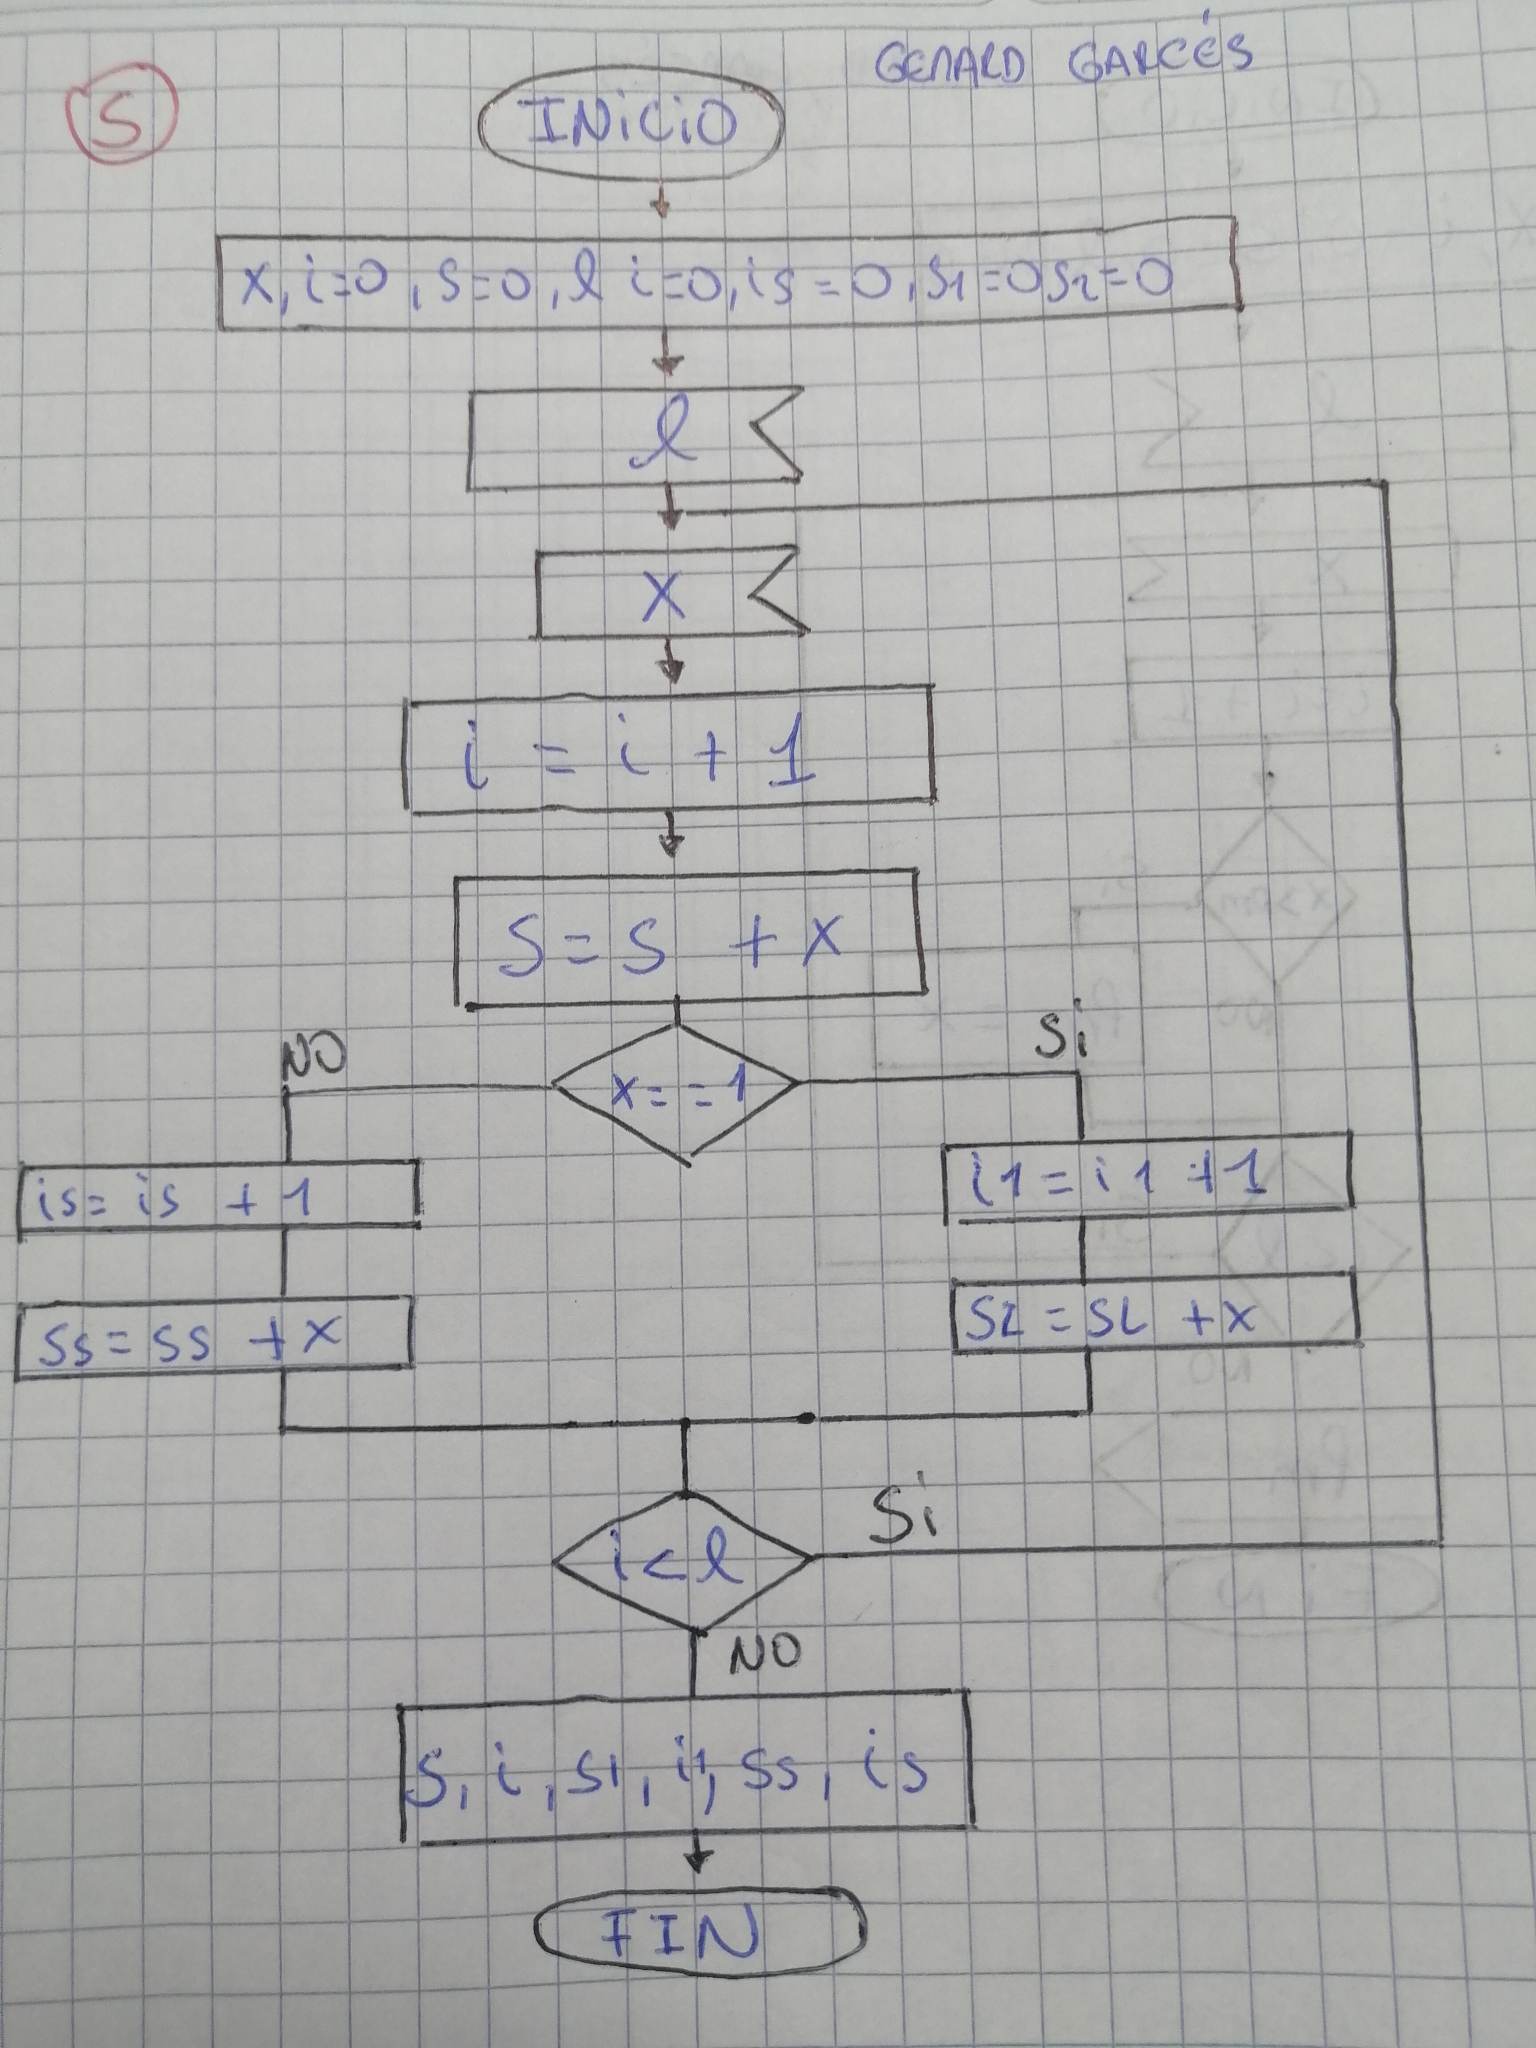 GERARD GARCÉS
5
INiCiO
x, i=0, s=0, l i=0, is=0, s1=0 s2=0
l
x
i = i + 1
S = S + x
NO
Si
x==1
is= is + 1
i1 = i1 +1
Ss= ss + x
S1 = S1 + x
i<l
Si
NO
S, i, s1, i1, Ss, is
FIN